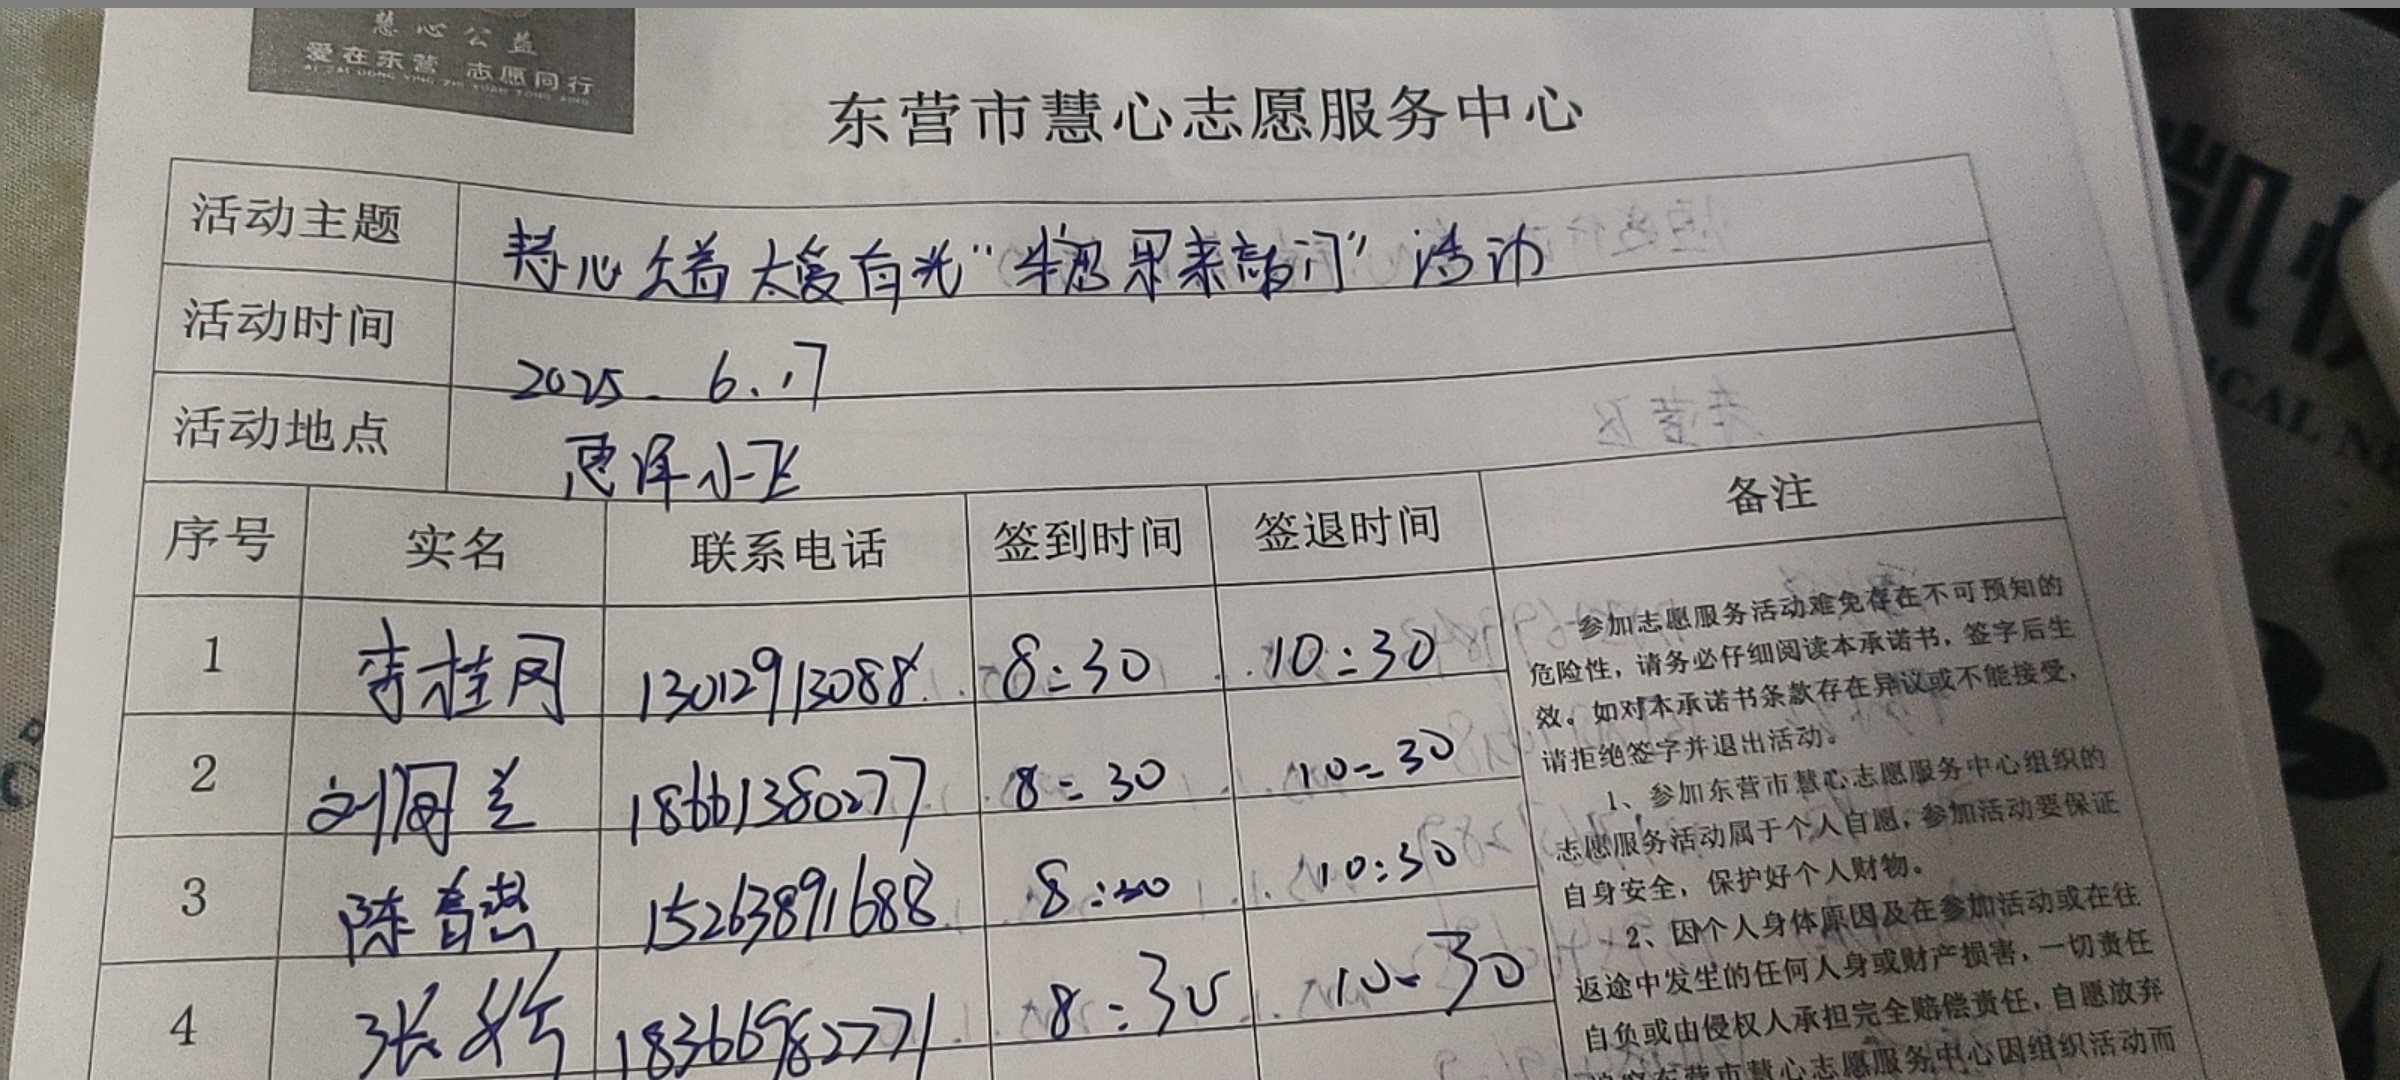 慧心公益
爱在东营 志愿同行
AI ZAI DONG YING ZHI YUAN TONG XING
东营市慧心志愿服务中心
活动主题 慧心公益 大爱有光“牛恩果来敲门”活动
活动时间 2025.6.17
活动地点 惠泽小区
序号 实名 联系电话 签到时间 签退时间 备注
1 李桂 13012913088 8:30 10:30
2 刘 兰 18661380277 8:30 10:30
3 陈 15263891688 8:30 10:30
4 张 18366982771 8:30 10:30
参加志愿服务活动难免存在不可预知的
危险性，请务必仔细阅读本承诺书，签字后生
效。如对本承诺书条款存在异议或不能接受，
请拒绝签字并退出活动。
1、参加东营市慧心志愿服务中心组织的
志愿服务活动属于个人自愿，参加活动要保证
自身安全，保护好个人财物。
2、因个人身体原因及在参加活动或在往
返途中发生的任何人身或财产损害，一切责任
自负或由侵权人承担完全赔偿责任，自愿放弃
东营市慧心志愿服务中心因组织活动而